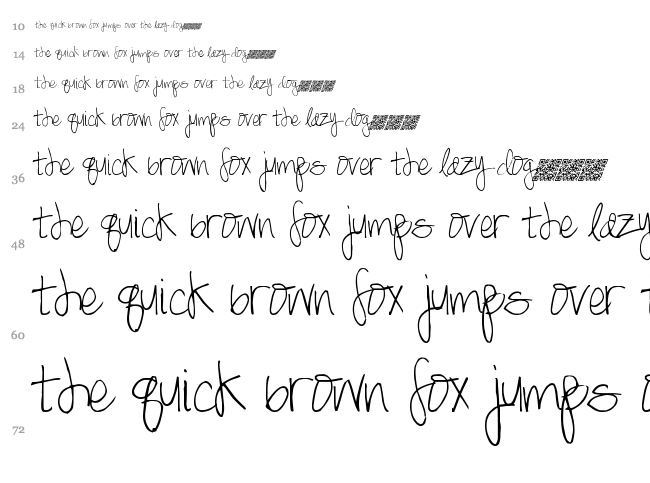 10 the quick brown fox jumps over the lazy dog
14 the quick brown fox jumps over the lazy dog
18 the quick brown fox jumps over the lazy dog
24 the quick brown fox jumps over the lazy dog
36 the quick brown fox jumps over the lazy dog
48 the quick brown fox jumps over the lazy
60 the quick brown fox jumps over
72 the quick brown fox jumps